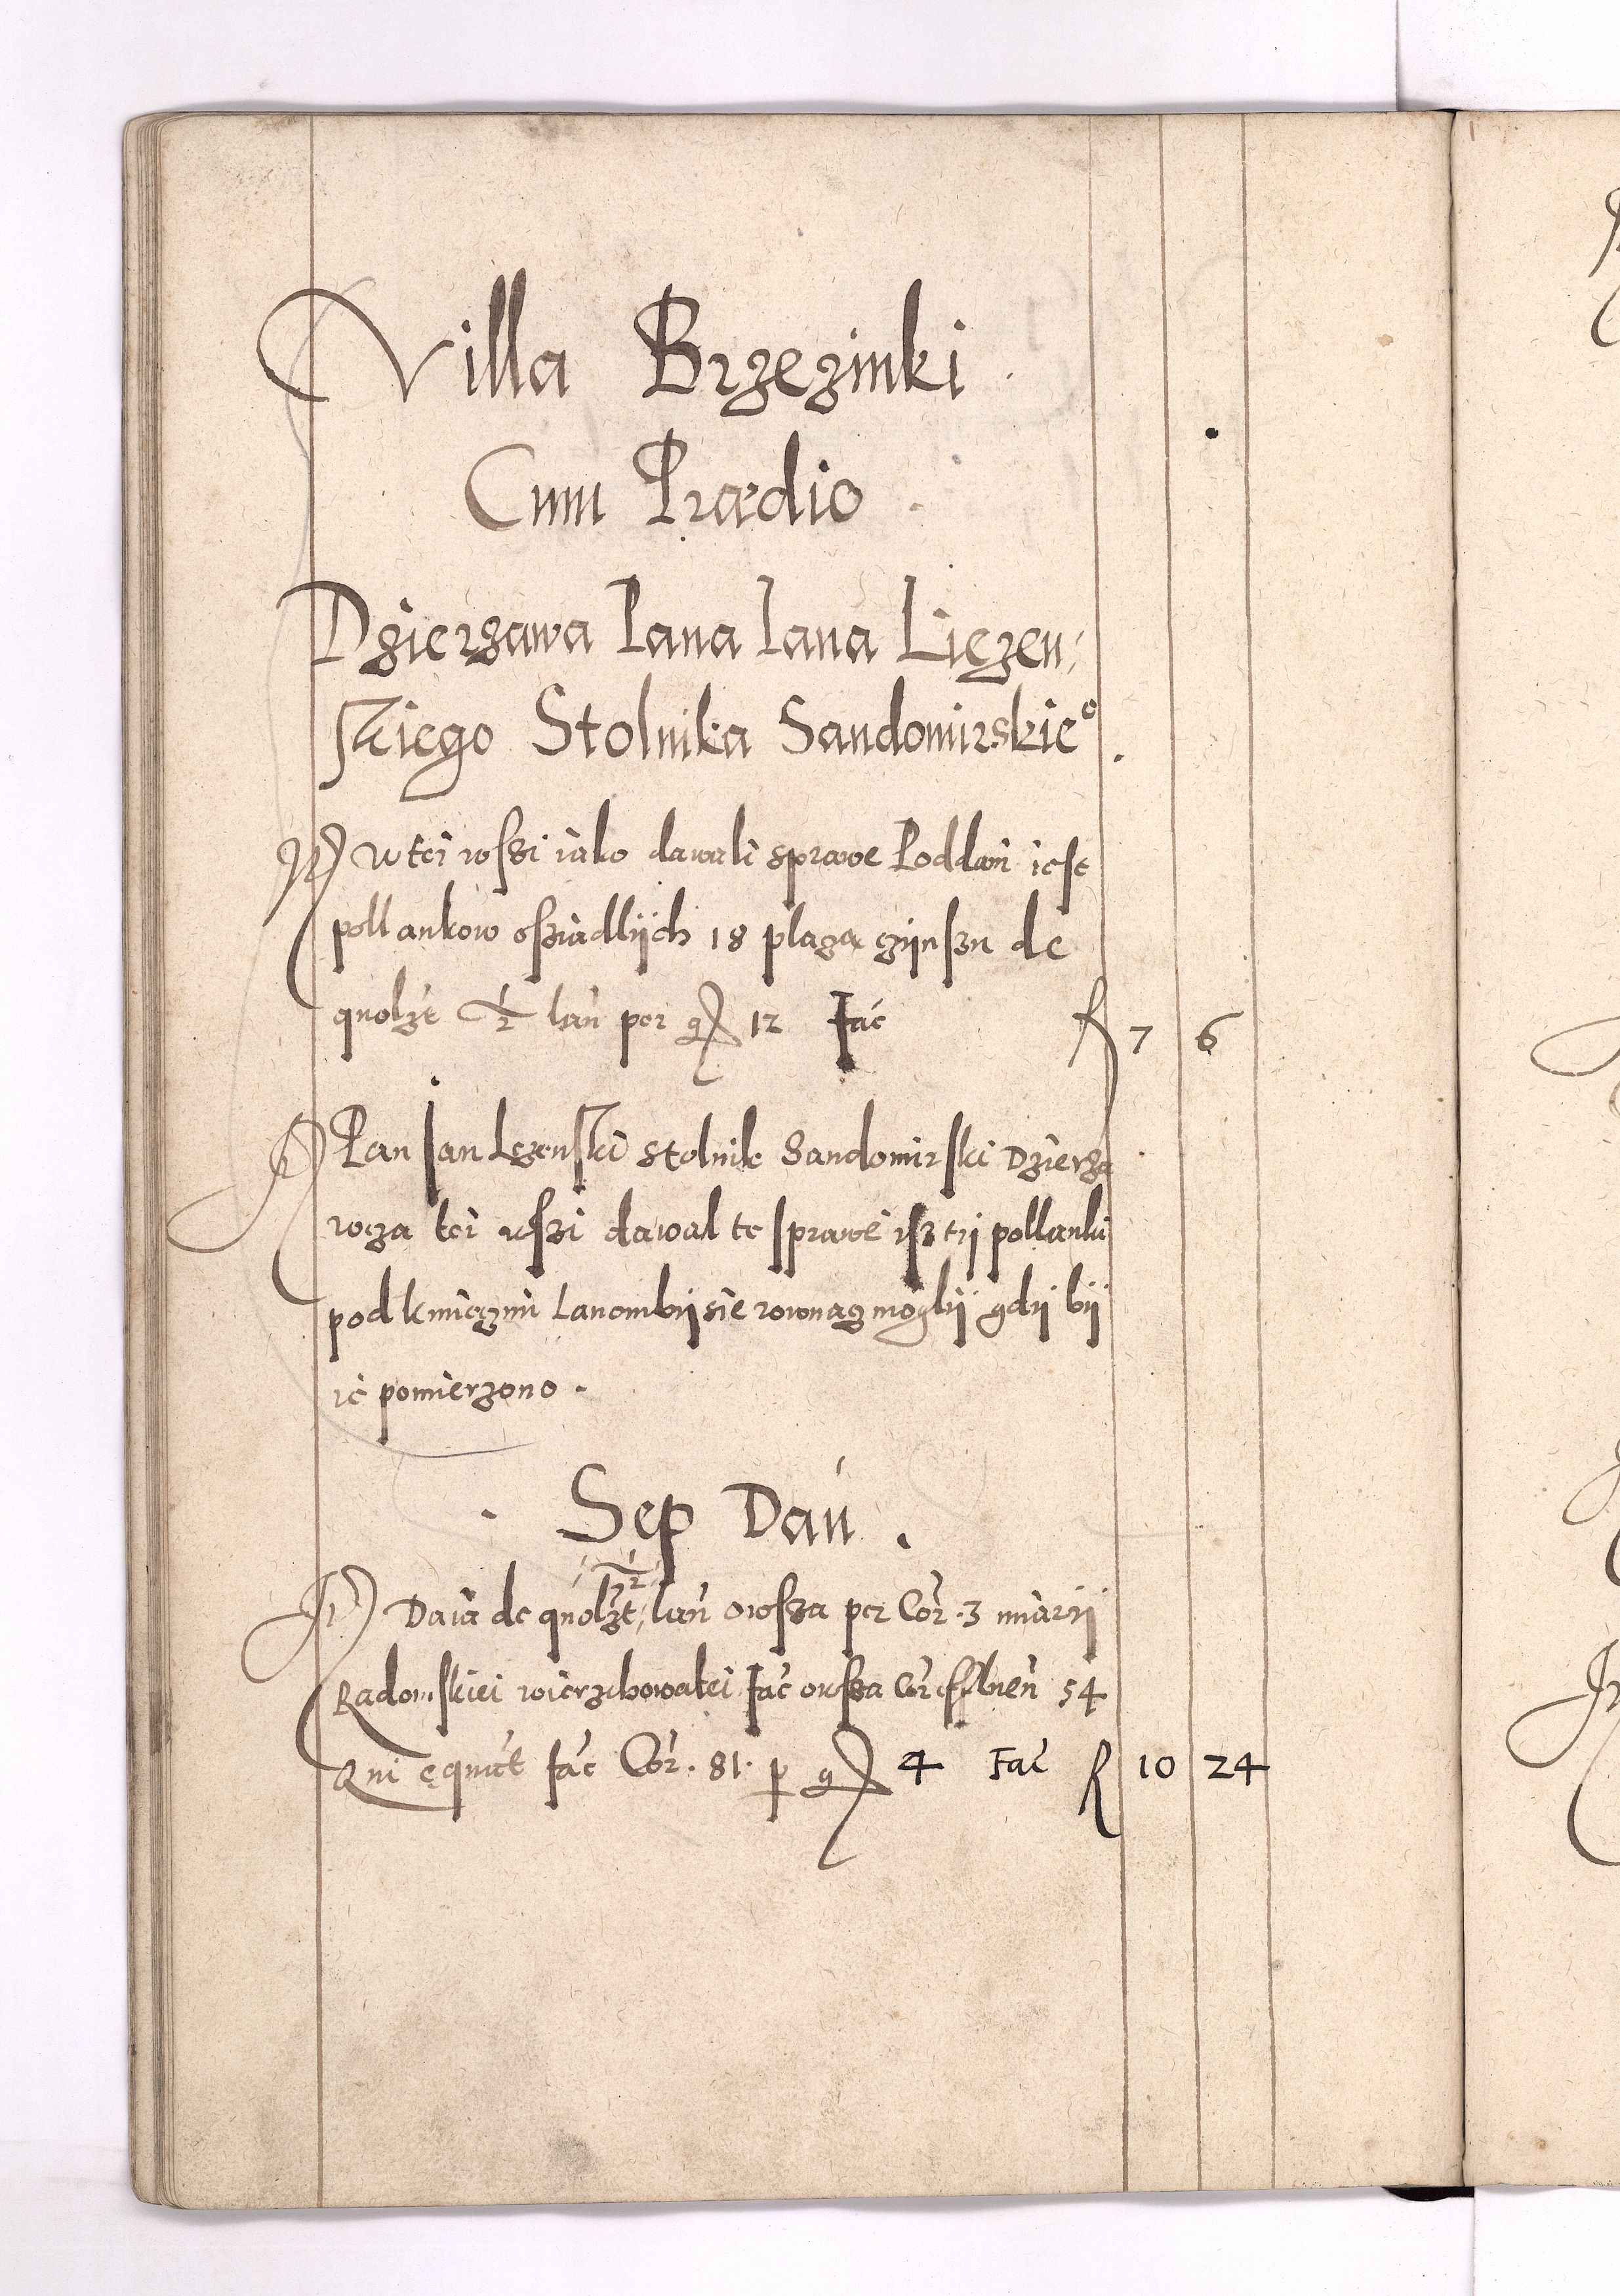 Villa Brzezinki.
Cum Prædio.
Dzierzawa Pana Iana Liezen,
skiego Stolnika Sandomirskieº.
It) W tei wsszi iako dawali sprawe Poddani iest
pollankow osziadlÿch 18 plaza czÿnszu de
quolzt ½ lan per g 12 Fac R 7 6
It) Pan Jan Lezenski Stolnik Sandomirski Dzierza
wcza tei wszi dawal te sprawe isz tÿ pollanki
pod kmieczmi Lanom bÿ sie rownacz moglÿ gdÿ bÿ
ie pomierzono.
Sep Dan.
½
It) Daia de quolzt, lan owsza per Cor. 3 miarÿ
Radomskiei wierzchowatei Fac owssa Cor 54
Qui equivt fac Cor. 81. p g 4 Fac R 10 24